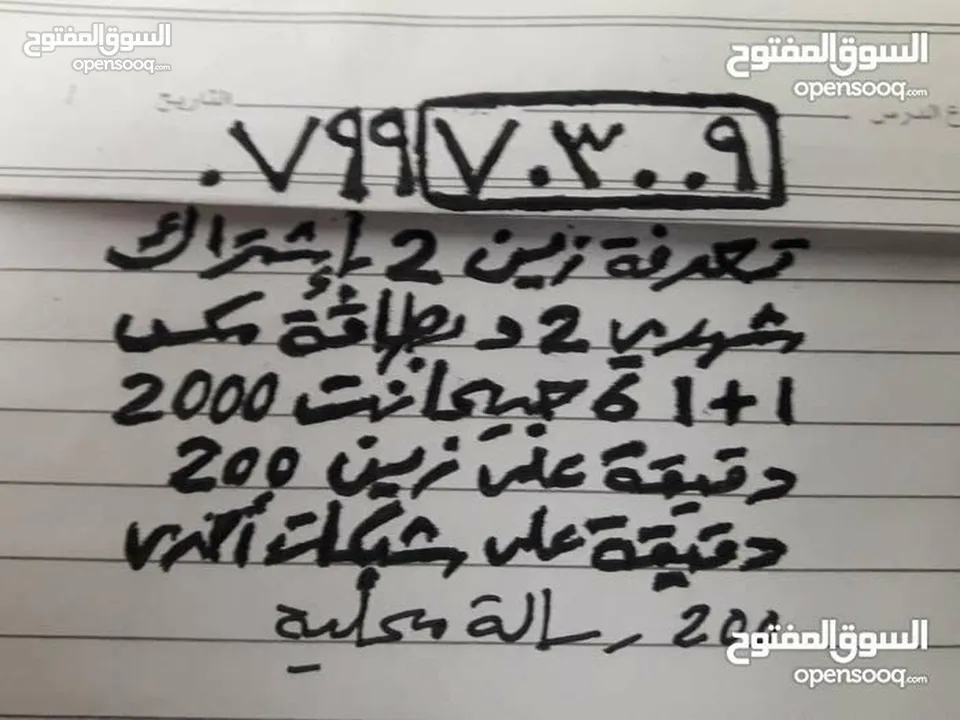 السوق المفتوح
opensooq.com
السوق المفتوح
opensooq.com
التاريخ
الدرس
٠٧٩٩٧٠٣٠٠٩
تعرفة زين 2 إشتراك
شهري 2 د بطاقة مكس
1+1 6 جيجا نت 2000
دقيقة على زين 200
دقيقة على شبكات أخرى
200 رسالة محلية
السوق المفتوح
opensooq.com